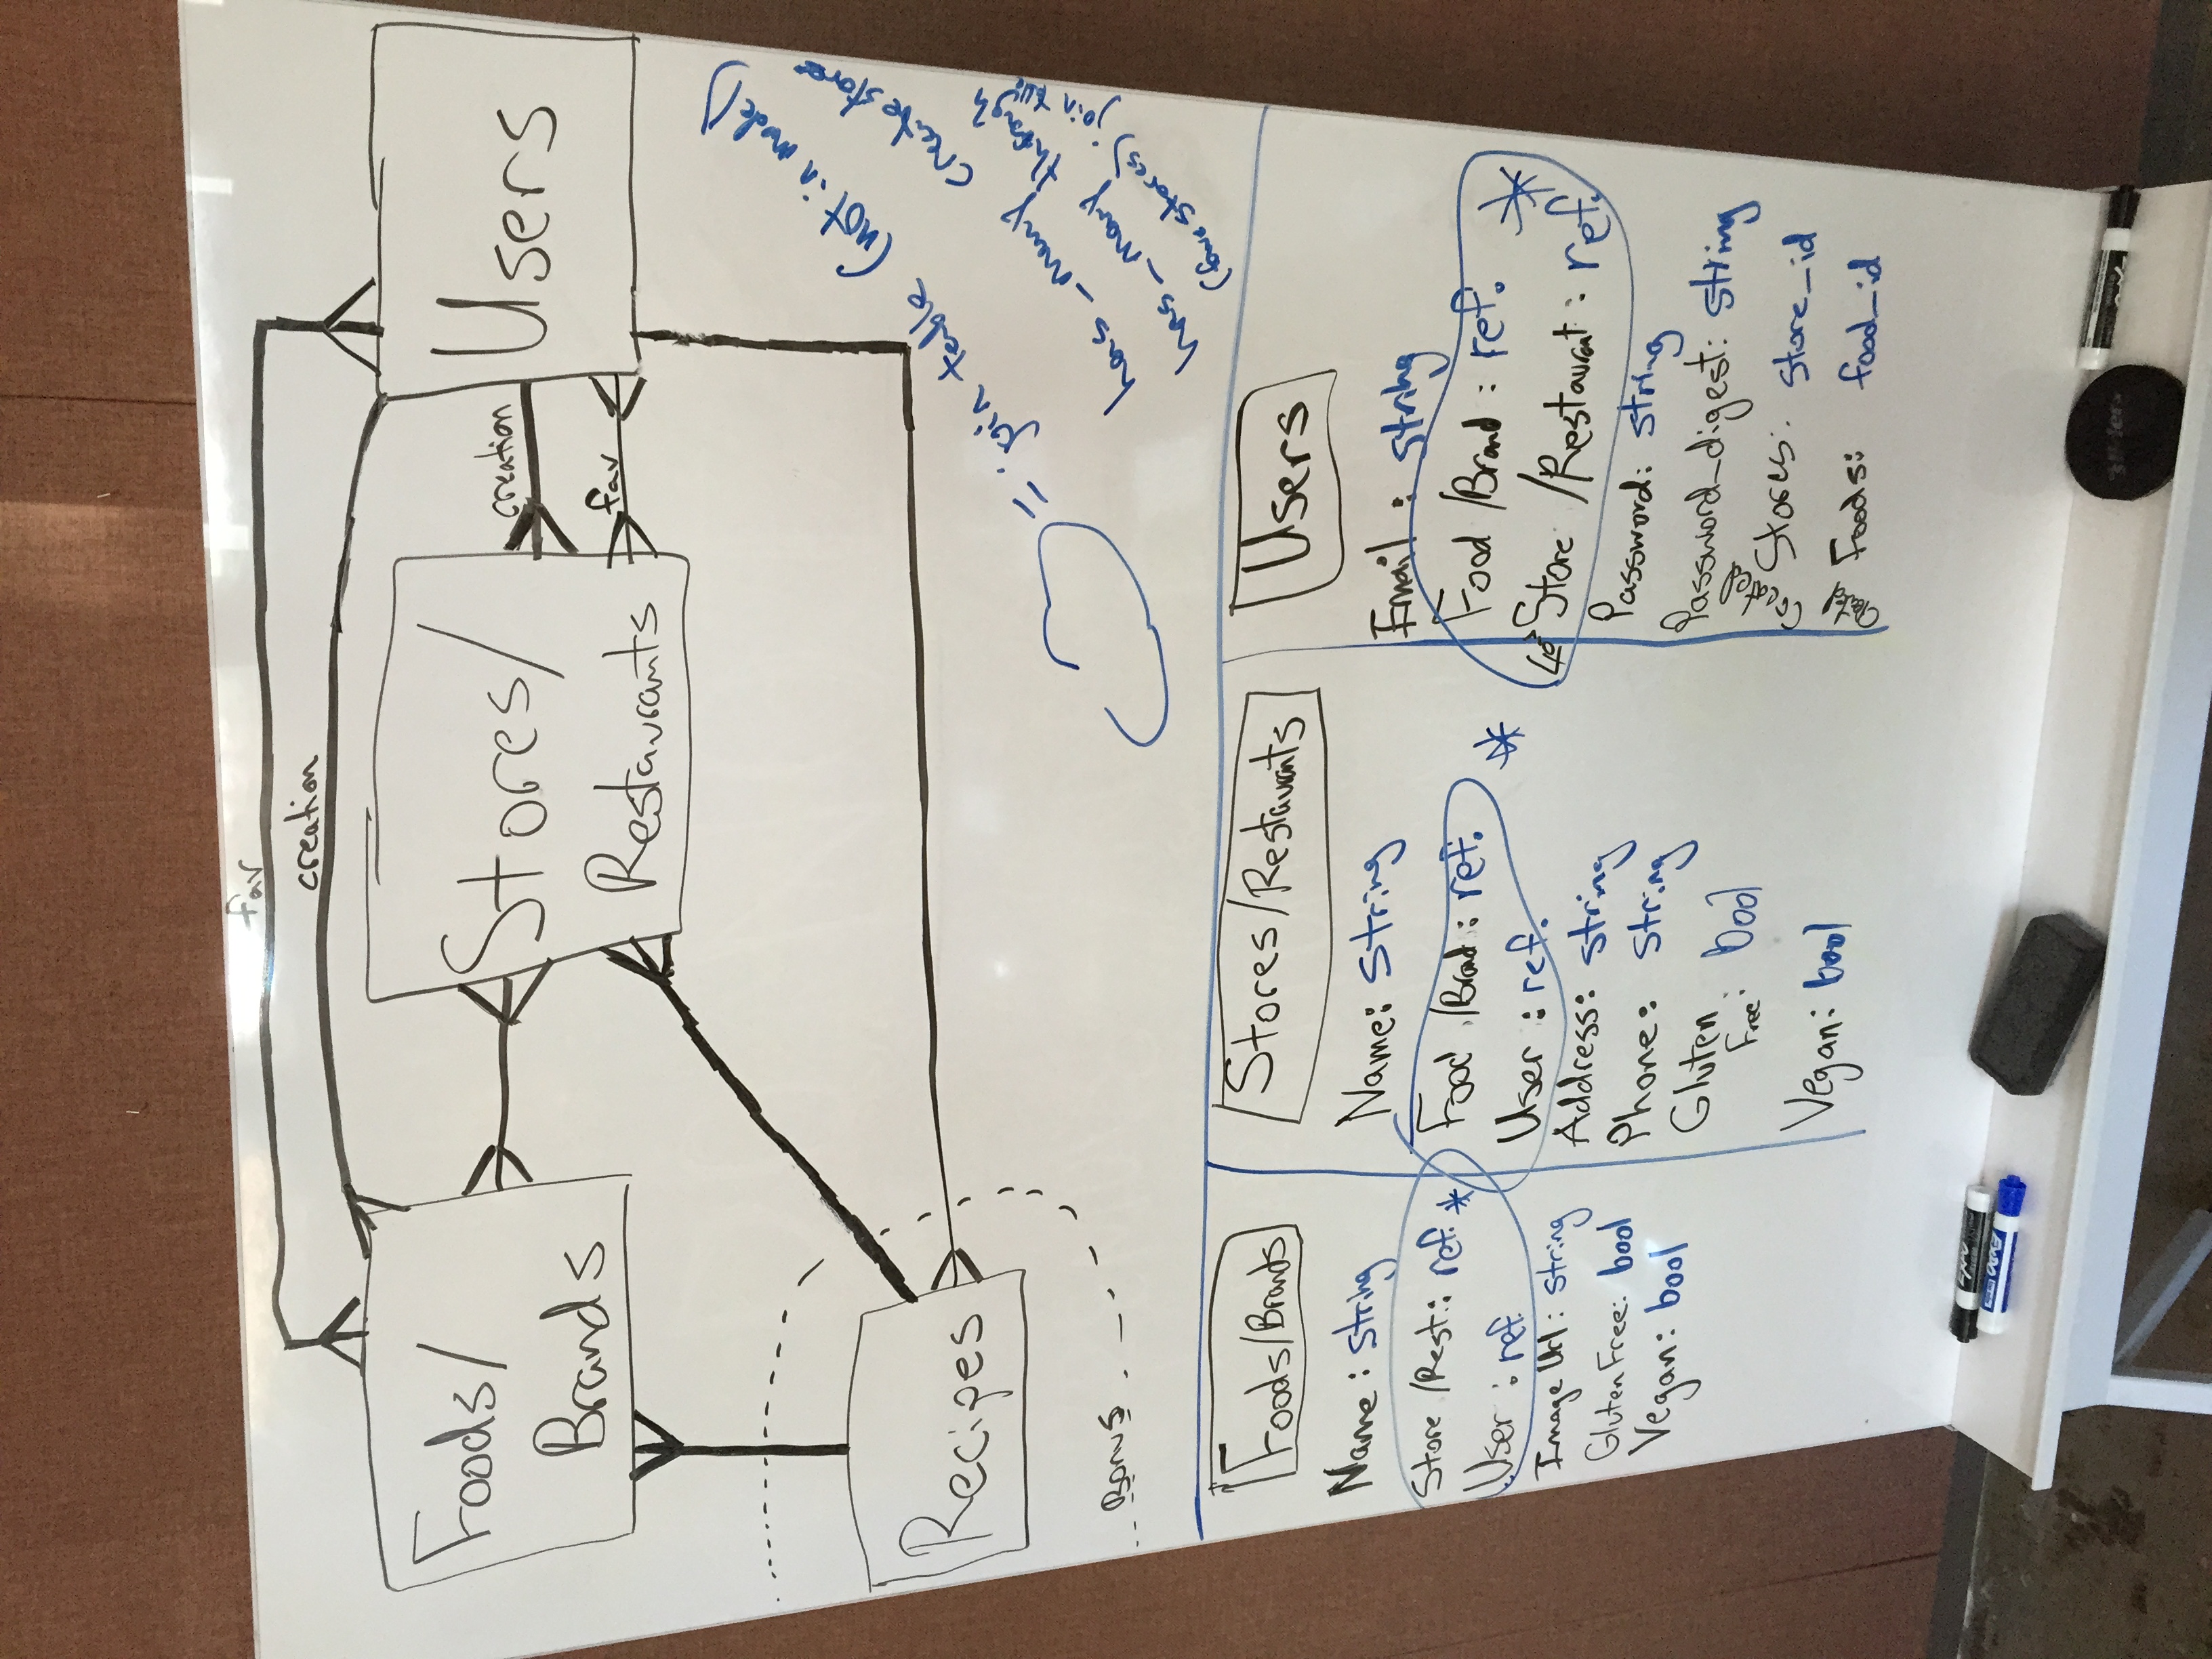 fav
creation
Foods/
Brands
Stores/
Restaurants
creation
fav
Users
Recipes
Bonus
= join table (not in model)
has_many createstores
has_many through
(fav stores) join
Foods/Brands
Name: string
Store/Rest.: ref. *
User: ref.
Image Url: string
Gluten Free: bool
Vegan: bool
Stores/Restaurants
Name: string
Food/Brand: ref.
*
User: ref.
Address: string
Phone: string
Gluten
Free: bool
Vegan: bool
Users
Email: string
Food/Brand: ref.
*
Store/Restaurant: ref.
Password: string
Password_digest: string
Created Stores: store_id
Foods: food_id